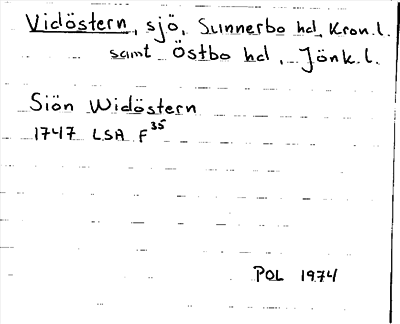 Vidöstern, sjö, Sunnerbo hd, Kron.l.
samt Östbo hd, Jönk.l.
Siön Widöstern
1747 LSA F35
POL 1974